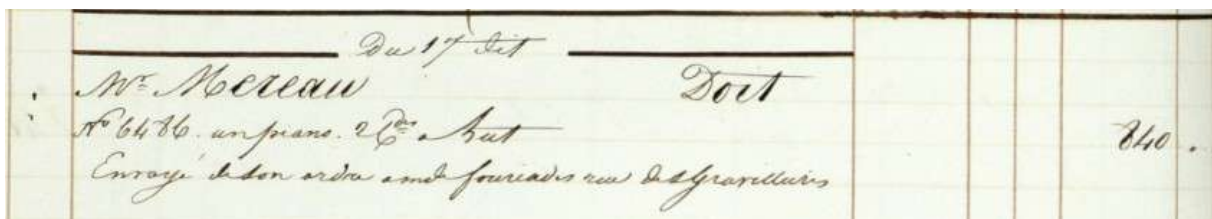 Du 17 dit
Mr. Mereau Doit
No 6486. un piano. 2 Cdes a Kut 840.
Envoyé de son ordre a rue des Gravilliers